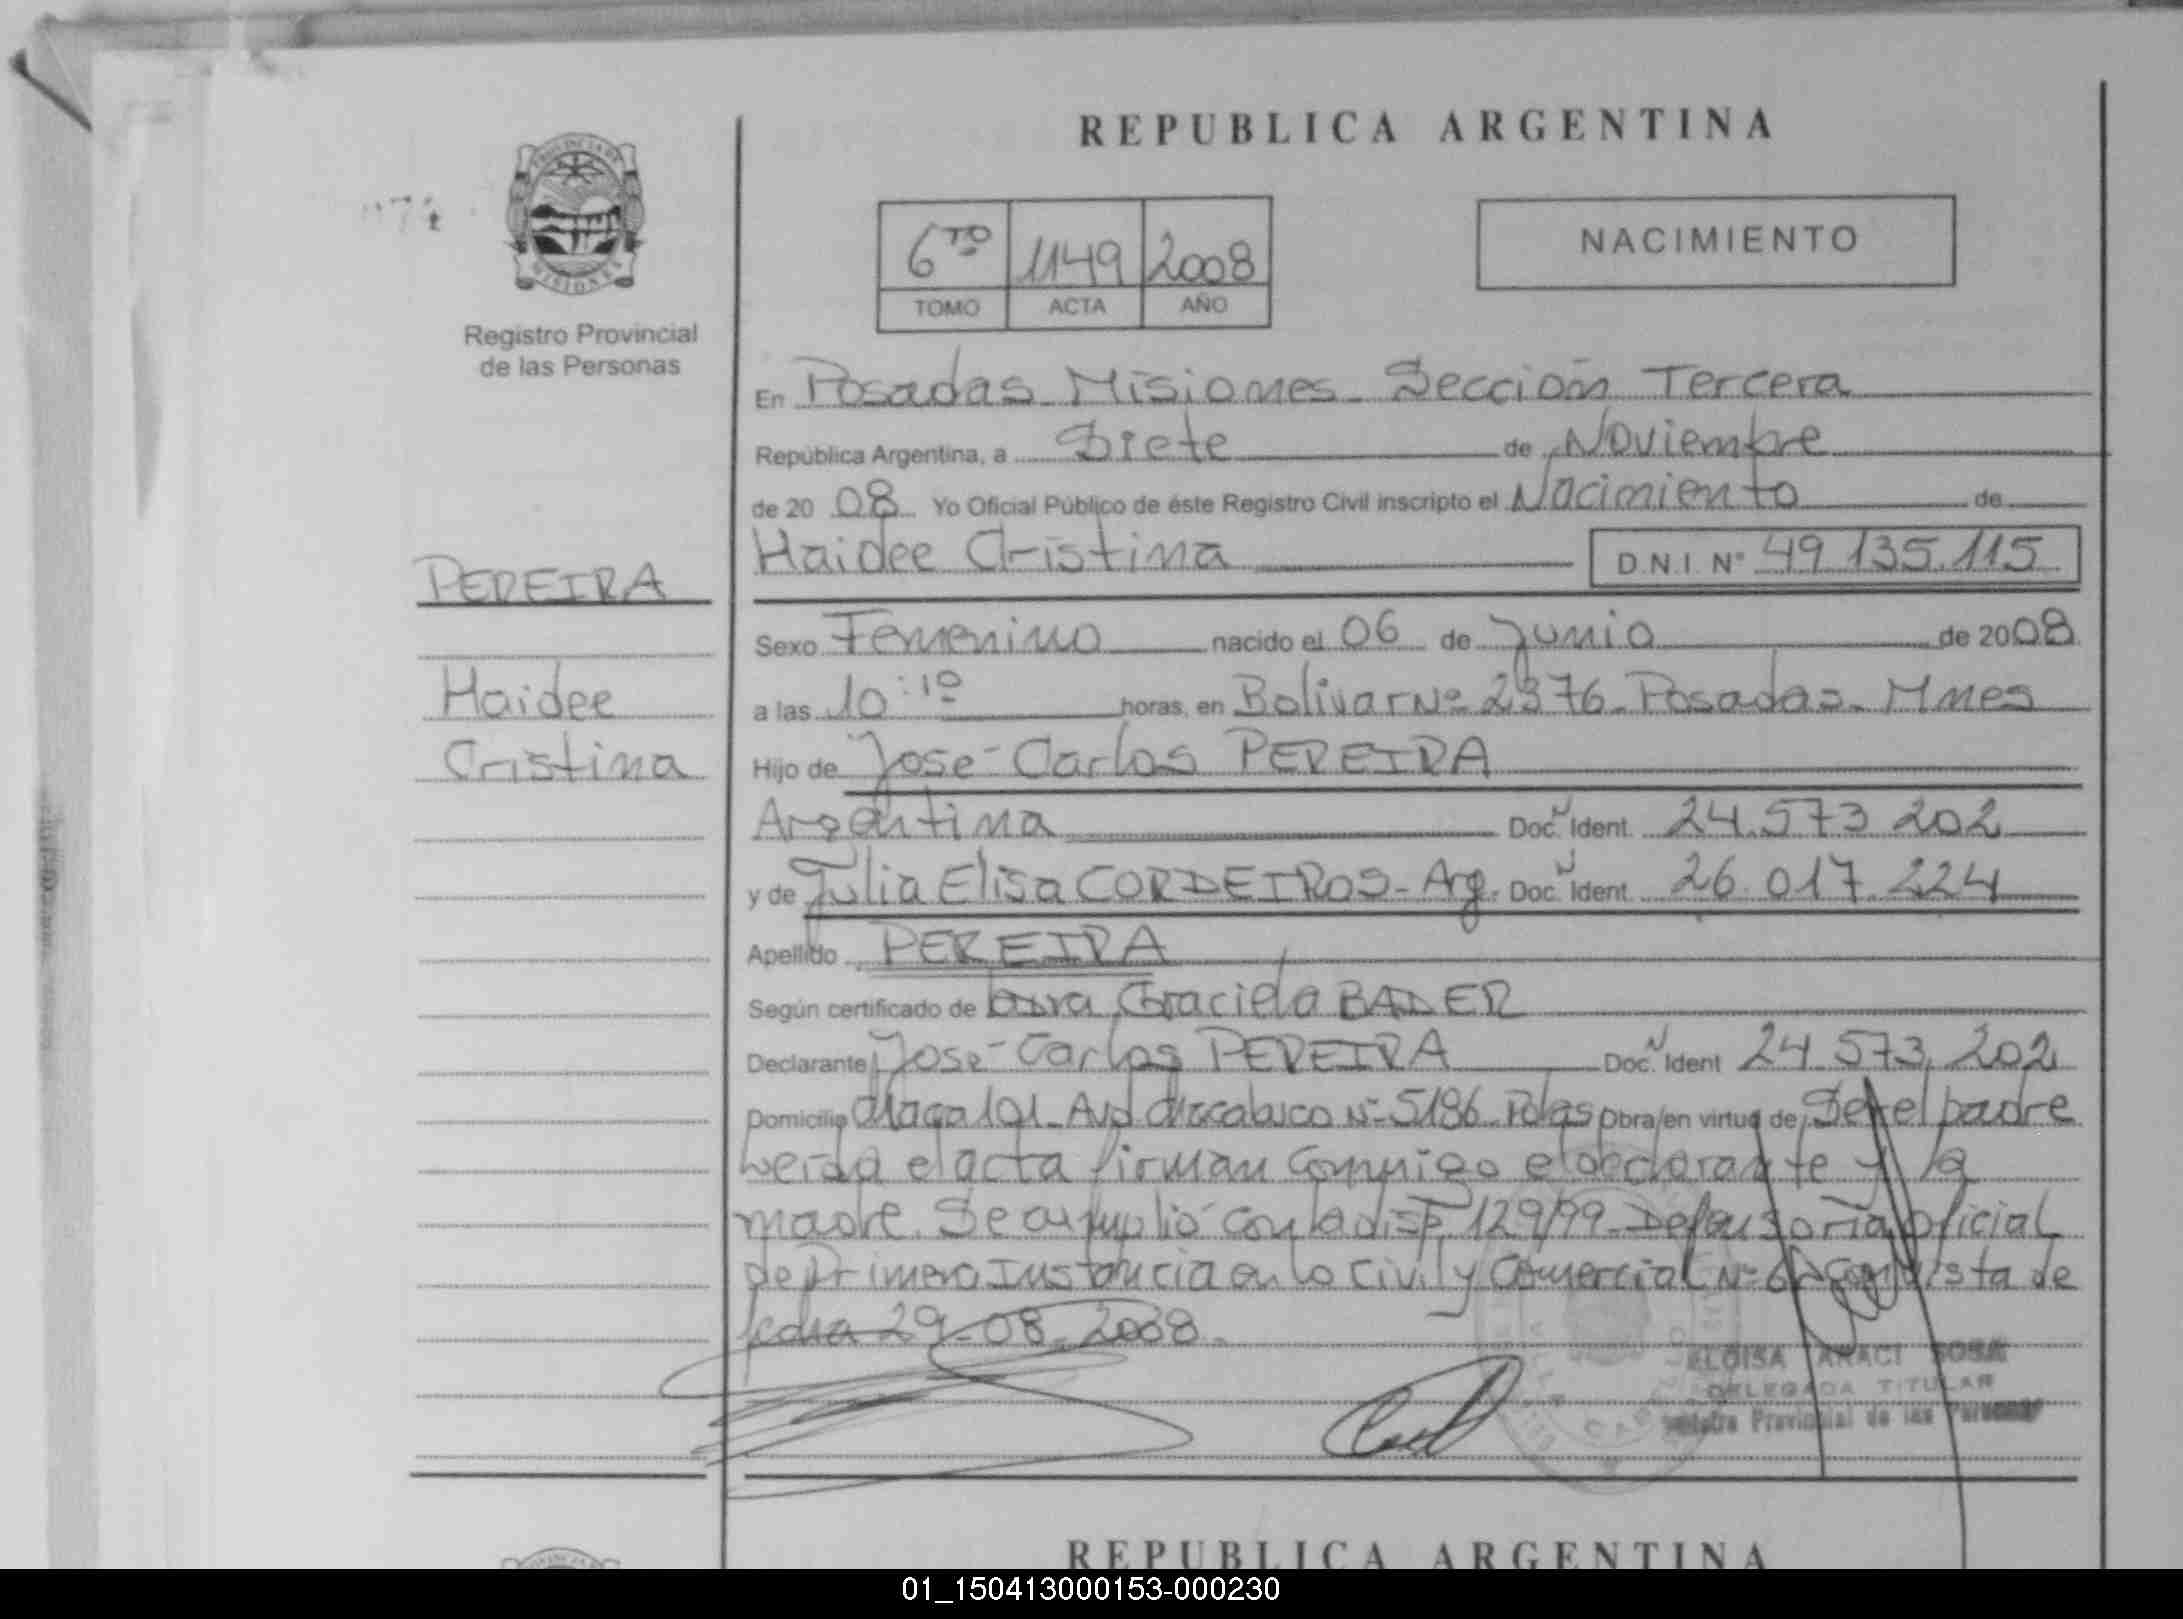 REPUBLICA ARGENTINA
PROVINCIA DE
MISIONES
NACIMIENTO
6TO 1149 2008
TOMO ACTA AÑO
Registro Provincial
de las Personas
En Posadas Misiones. Sección Tercera
República Argentina, a Siete de Noviembre
de 20 08 Yo Oficial Público de éste Registro Civil inscripto el Nacimiento de
Haidee Cristina D.N.I. Nº 49.135.115
PEREIRA
Haidee
Cristina
Sexo Femenino nacido el 06 de Junio de 2008
a las 10:10 horas, en Bolivar Nº 2376. Posadas. Mnes
Hijo de José Carlos PEREIRA
Argentina Doc. Ident. 24.573.202
y de Julia Elisa CORDEIROS - Arg. Doc. Ident. 26.017.224
Apellido PEREIRA
Según certificado de Laura Graciela BADER
Declarante José Carlos PEREIRA Doc. Ident 24.573.202
Domicilio Chacra 101. Avd Chacabuco Nº 5186. Pdas Obra en virtud de Ser el padre
Leida el acta firman conmigo el declarante y la
madre. Se cumplió con la disp. 129/99. Defensoría Oficial
de Primera Instancia en lo Civil y Comercial Nº 6 Con vista de
fecha 29-08-2008.
ELOISA ARACI SOSA
DELEGADA TITULAR
Registro Provincial de las Personas
REPUBLICA ARGENTINA
01_150413000153-000230